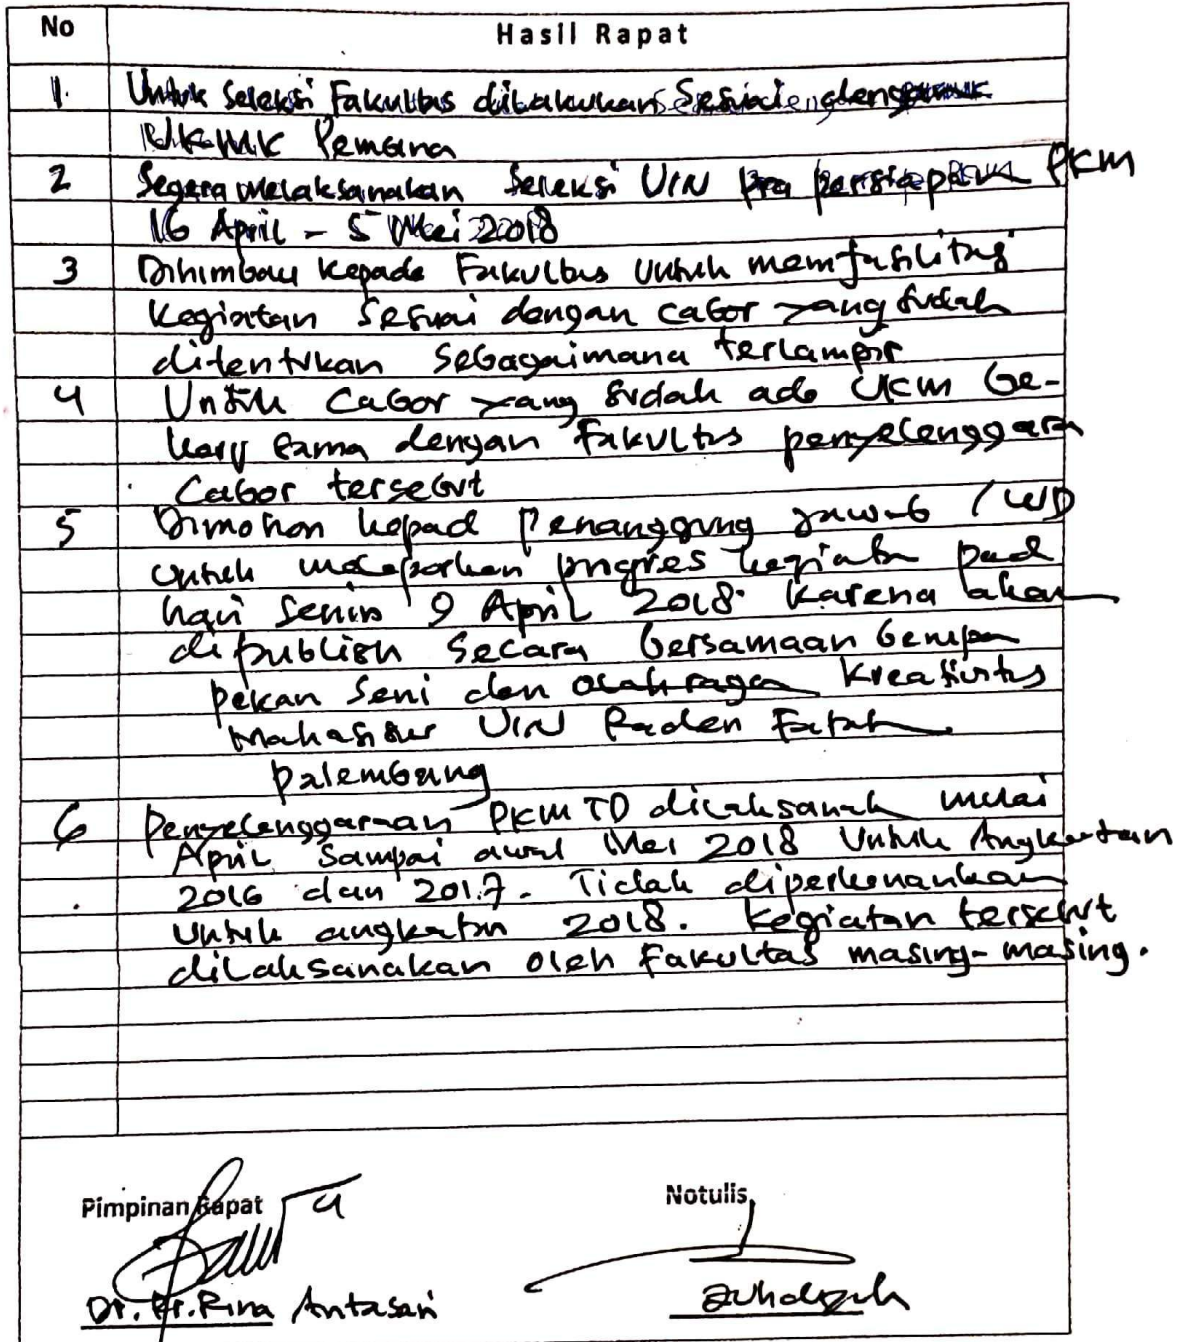 No Hasil Rapat
1. Untuk Seleksi Fakultas dilakukan Sesuai dengan
Pemena
2 Segera melaksanakan Seleksi UIN pra persiapan PKM
16 April - 5 Mei 2018
3 Dihimbau kepada Fakultas Untuk memfasilitas
Kegiatan Sesuai dengan cabor yang sudah
ditentukan sebagaimana terlampir
4 Untuk Cabor yang sudah ada UKM be-
kerj sama dengan fakultas penyelenggara
Cabor tersebut
5 Dimohon kepad Penanggung Jawab / WD
untuk melaporkan progres kegiatan pad
hari Senin 9 April 2018. Karena akan
dipublish Secara bersamaan berupa
pekan Seni dan olahraga Kreatifitas
Mahasisw UIN Raden Fatah
palembang
6 Penyelenggaraan PKM TD dilaksanak mulai
April Sampai awal Mei 2018 Untuk Angkatan
2016 dan 2017. Tidak diperkenankan
Untuk angkatan 2018. Kegiatan tersebut
dilaksanakan oleh Fakultas masing-masing.
Pimpinan Rapat Notulis,
Dr. Hr. Rina Antasari